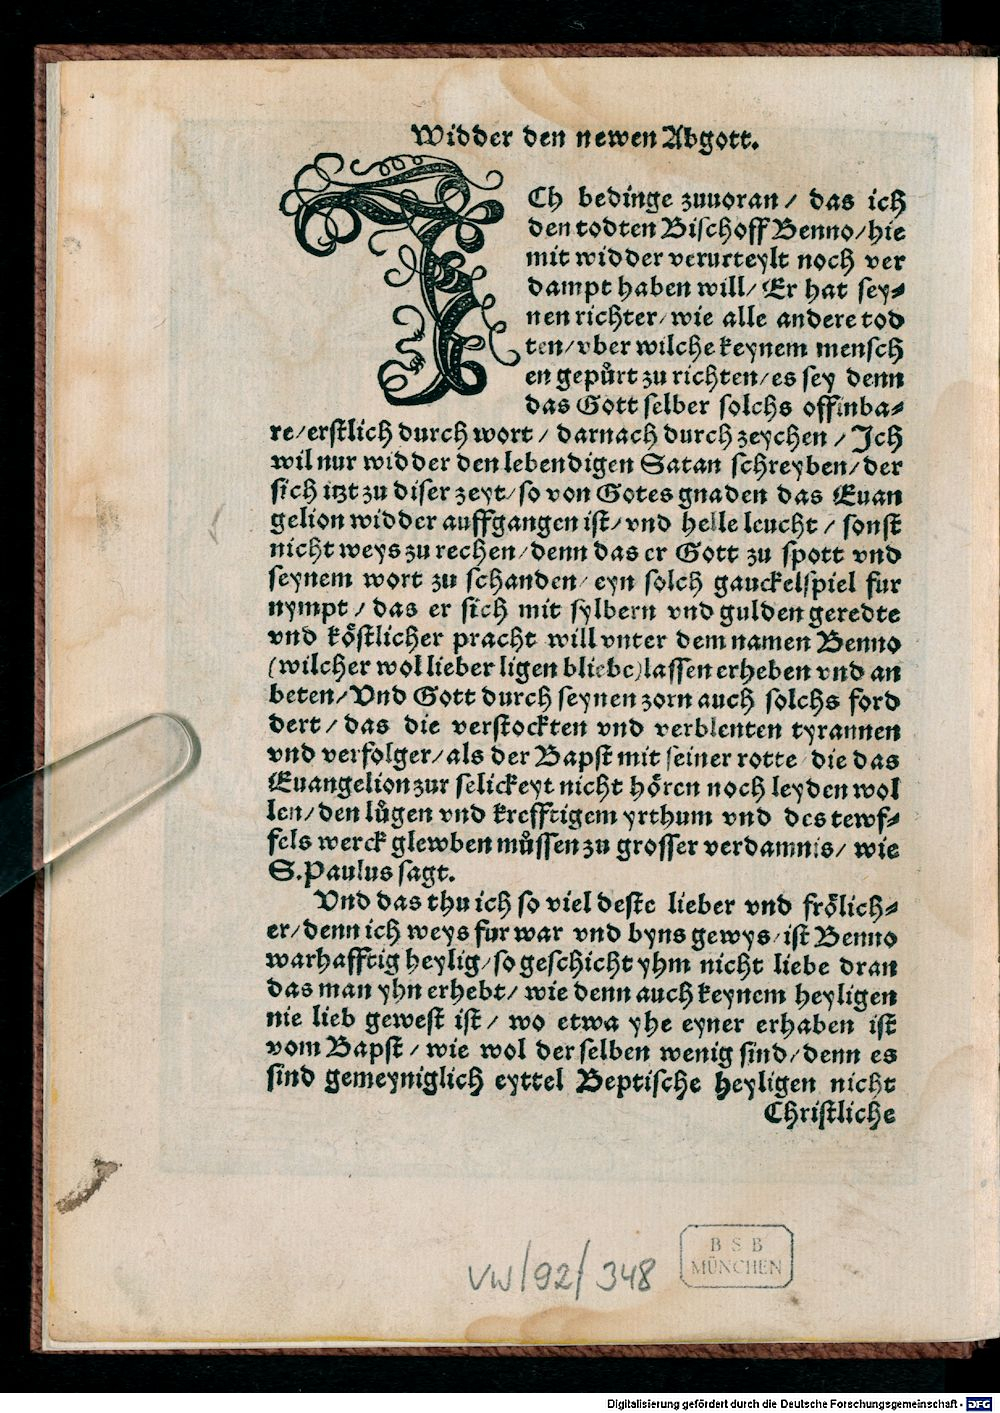 Widder den newen Abgott.
ICh bedinge zuuoran / das ich
den todten Bischoff Benno / hie
mit widder verurteylt noch ver
dampt haben will / Er hat sey⸗
nen richter / wie alle andere tod
ten / vber wilche keynem mensch
en gepůrt zu richten / es sey denn
das Gott selber solchs offinba⸗
re / erstlich durch wort / darnach durch zeychen / Ich
wil nur widder den lebendigen Satan schreyben / der
sich itzt zu diser zeyt / so von Gotes gnaden das Euan
gelion widder auffgangen ist / vnd helle leucht / sonst
nicht weys zu rechen / denn das er Gott zu spott vnd
seynem wort zu schanden / eyn solch gauckelspiel fur
nympt / das er sich mit sylbern vnd gulden geredte
vnd kostlicher pracht will vnter dem namen Benno
(wilcher wol lieber ligen bliebe) lassen erheben vnd an
beten / Vnd Gott durch seynen zorn auch solchs ford
dert / das die verstockten vnd verblenten tyrannen
vnd verfolger / als der Bapst mit seiner rotte / die das
Euangelion zur selickeyt nicht hören noch leyden wol
len / den lůgen vnd krefftigem yrthum vnd des tewf⸗
fels werck glewben můssen zu grosser verdamnis / wie
S. Paulus sagt.
Vnd das thu ich so viel deste lieber vnd frölich⸗
er / denn ich weys fur war vnd byns gewys / ist Benno
warhafftig heylig / so geschicht yhm nicht liebe dran
das man yhn erhebt / wie denn auch keynem heyligen
nie lieb gewest ist / wo etwa yhe eyner erhaben ist
vom Bapst / wie wol der selben wenig sind / denn es
sind gemeyniglich eyttel Beptische heyligen nicht
Christliche
VW/92/348
B S B
MÜNCHEN
Digitalisierung gefördert durch die Deutsche Forschungsgemeinschaft - DFG